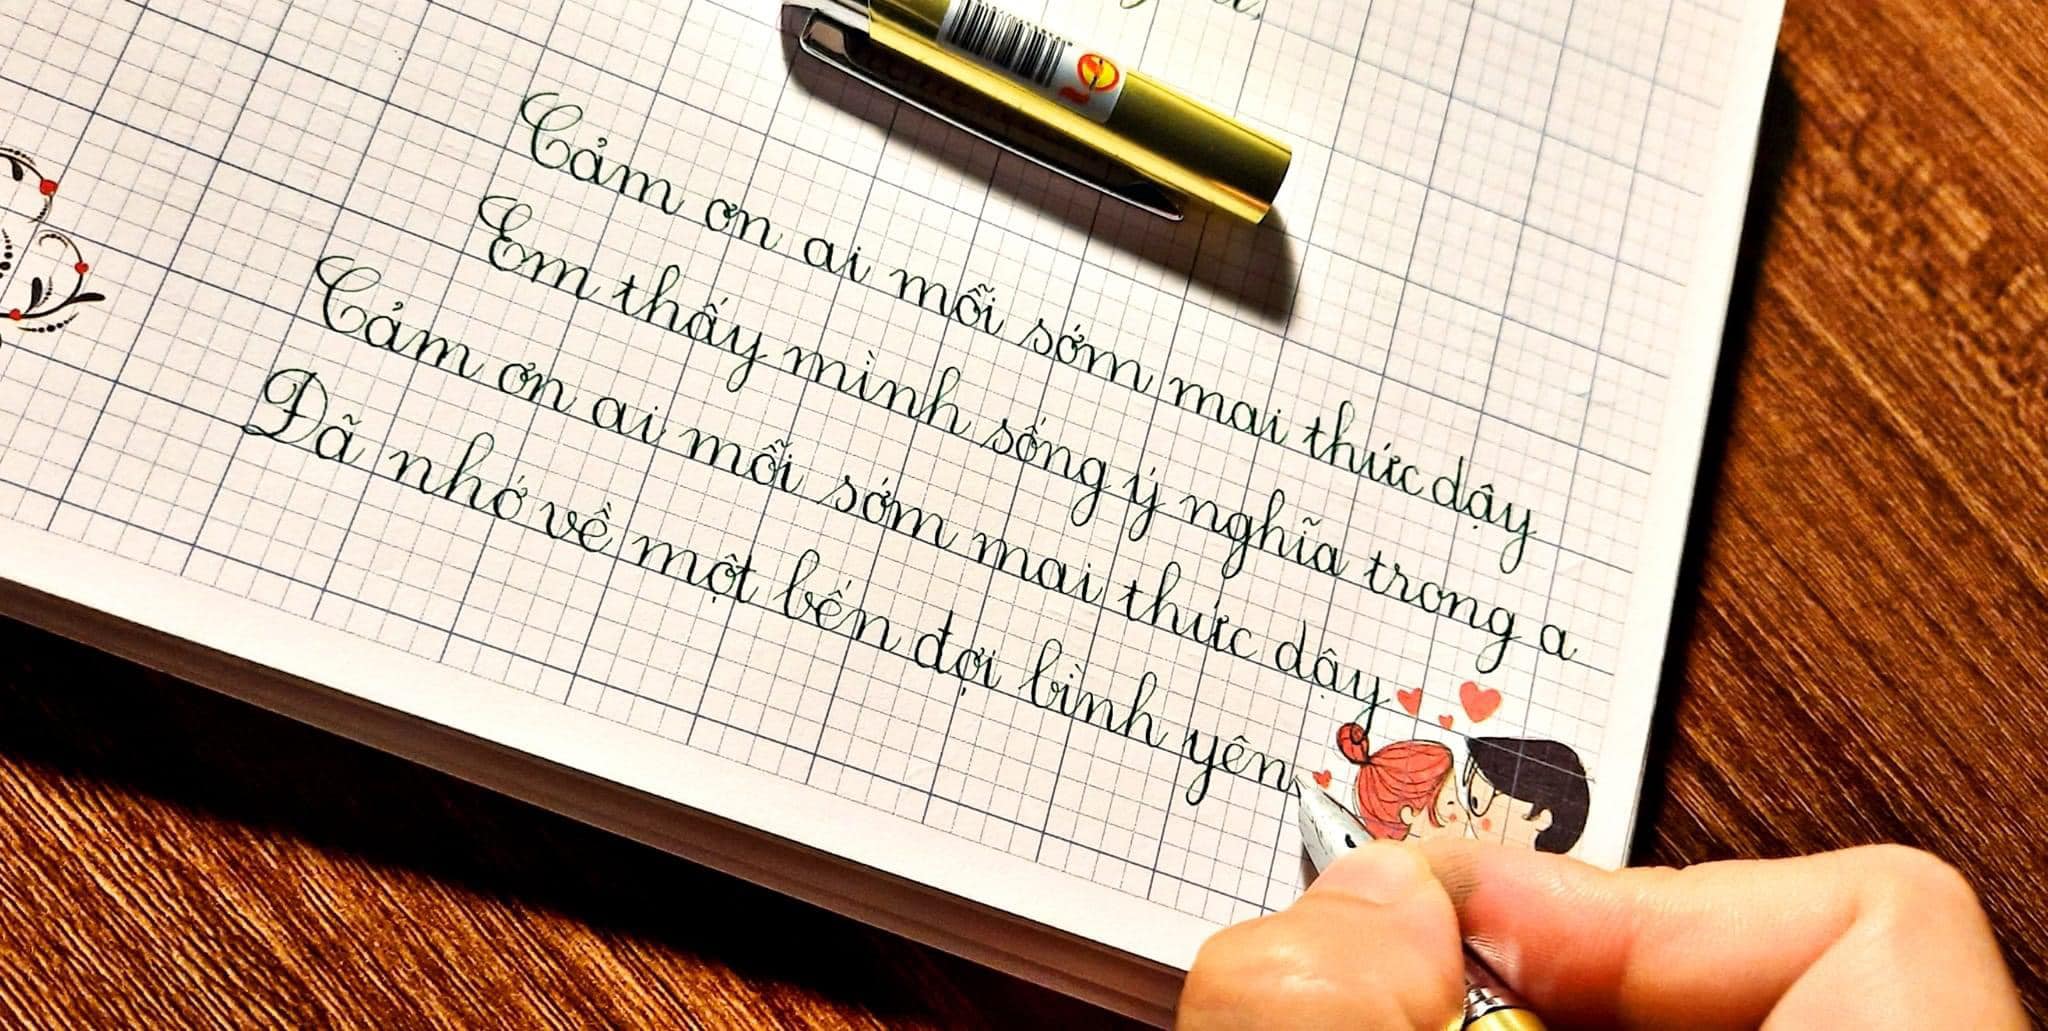 Cảm ơn ai mỗi sớm mai thức dậy
Em thấy mình sống ý nghĩa trong a
Cảm ơn ai mỗi sớm mai thức dậy
Đã nhớ về một bến đợi bình yên